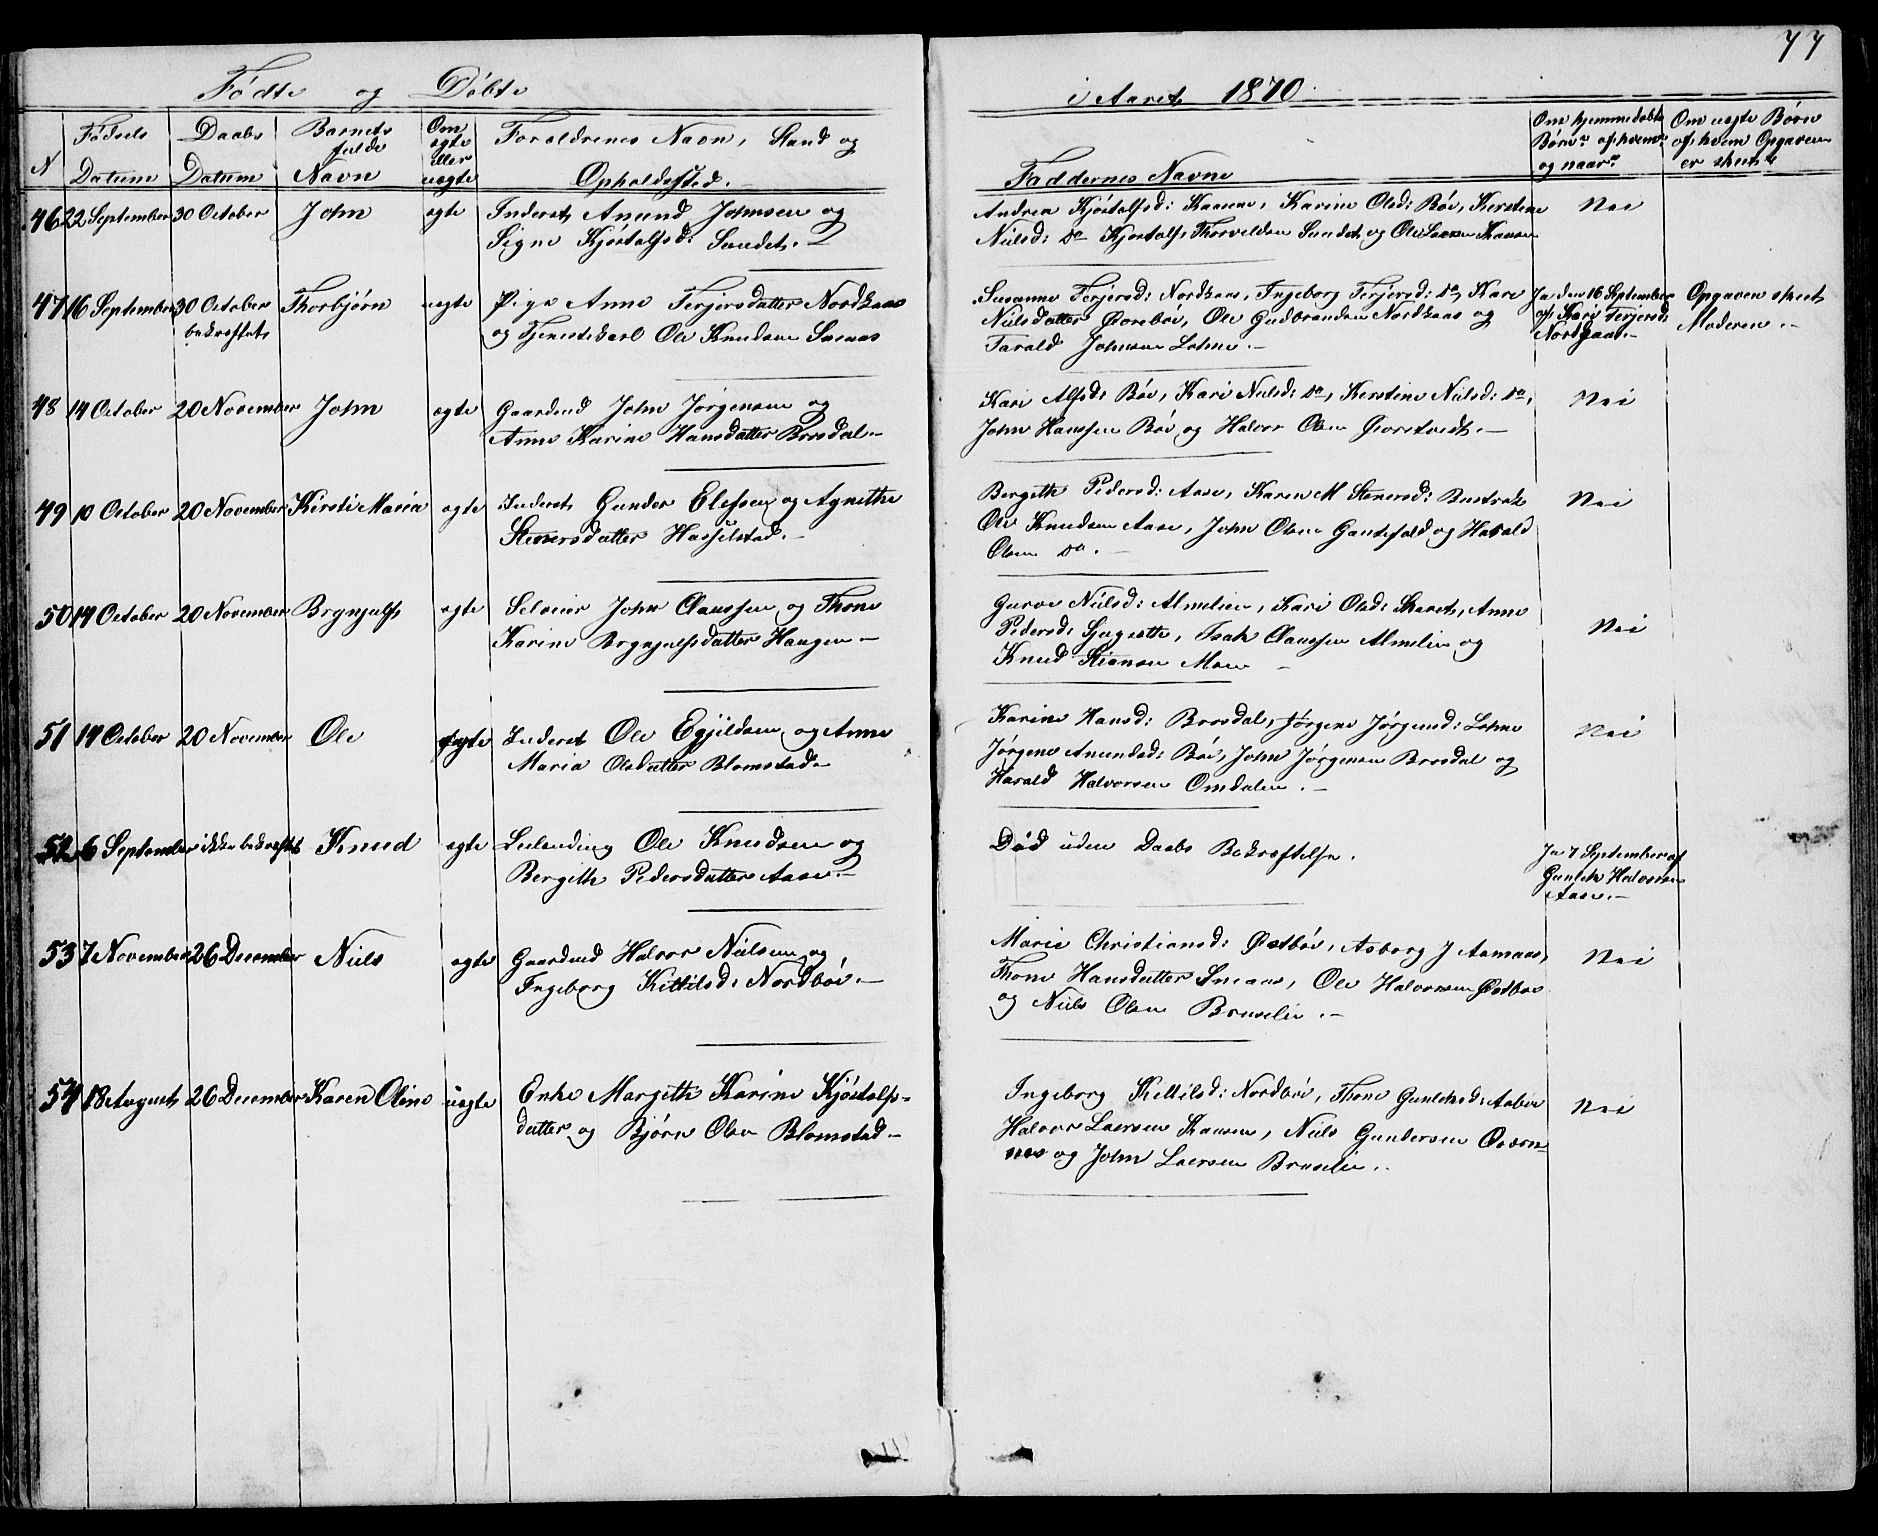 77
Födte og Döbte i Aaret 1870
N
Födsels Datum
Daabs Datum
Barnets fulde Navn
Om ægte eller uægte
Forældrenes Navn, Stand og Opholdssted.
Faddernes Navne
Om hjemmedöbte Börn af hvem og naar
Om uægte Börn af hvem Opgaven er skeet
46 22 September 30 October John ægte Inderst Anund Johnsen og
Signe Kjöstolfsd: Sundet.
Andrea Kjöstolfsd: Kaasene, Karine Olsd: Böe, Kirstine
Nielsd: do Kjöstolf Thorvildsen Sundet og Ole Larsen Kaasen
Nei
47 16 September 30 October bekræftet Thorbjörn uægte Pige Anne Terjersdatter Nordkaas
og Tjenestekarl Ole Knudsen Snenes
Susanne Terjersd: Nordkaas, Ingeborg Terjersd: do, Kari
Nielsdatter Goreböe, Ole Gudbrandsen Nordkaas og
Tarald Johnsen Lohne.
Ja den 16 September
af Kari Terjersd:
Nordgaas.
Opgaven skeet
Moderen.
48 14 October 20 November John ægte Gaardmd John Jörgensen og
Anne Karine Hansdatter Brosdal.
Kari Alfsd: Böe, Kari Nielsd: do, Kirstine Nielsd: do,
John Hanssen Böe og Halvor Olsen Gorstvedt.
Nei
49 10 October 20 November Kirsti Maria ægte Inderst Gunder Elefsen og Agnethe
Stenersdatter Hasselstad.
Bergith Pedersd: Aase, Karen M Stenersd: Bustrak
Ole Knudsen Aase, John Olsen Gautefald og Harald
Olsen do.
Nei
50 14 October 20 November Brynjulf ægte Selveier John Claussen og Thone
Karine Brynjulfsdatter Haugen
Gurve Nielsd: Almelien, Kari Olsd: Skaret, Anne
Pedersd: Sjugsette, Isak Claussen Almelie og
Knud Stiansen Moen
Nei
51 14 October 20 November Ole ægte Inderst Ole Egjildsen og Anne
Maria Olsdatter Blomstad
Karine Hansd: Brosdal, Jörgene Jörgensd: Lohne
Jörgene Anundsd: Böe, John Jörgensen Brosdal og
Harald Halvorsen Omdalen.
Nei
52 6 September ikke bekræftet Knud ægte Leilending Ole Knudsen og
Bergith Pedersdatter Aase.
Död uden Daabs Bekræftelse.
Ja 7 September af
Gunlek Halvorsen
Aase.
53 7 November 26 December Niels ægte Gaardmd Halvor Nielsen og
Ingeborg Kittilsd: Nordböe.
Marie Christiansd: Östböe, Asborg J Aamaas,
Thone Hansdatter Sneaas, Ole Halvorsen Östböe
og Niels Olsen Bruselie.
Nei
54 18 August 26 December Karen Oline uægte Enke Margith Karine Kjöstolfs-
datter og Björn Olsen Blomstad
Ingeborg Kittilsd: Nordböe, Thone Gunleksd: Aaböe
Halvor Larsen Kaasen, Niels Gundersen Qværn-
nes og John Larsen Bruselie.
Nei